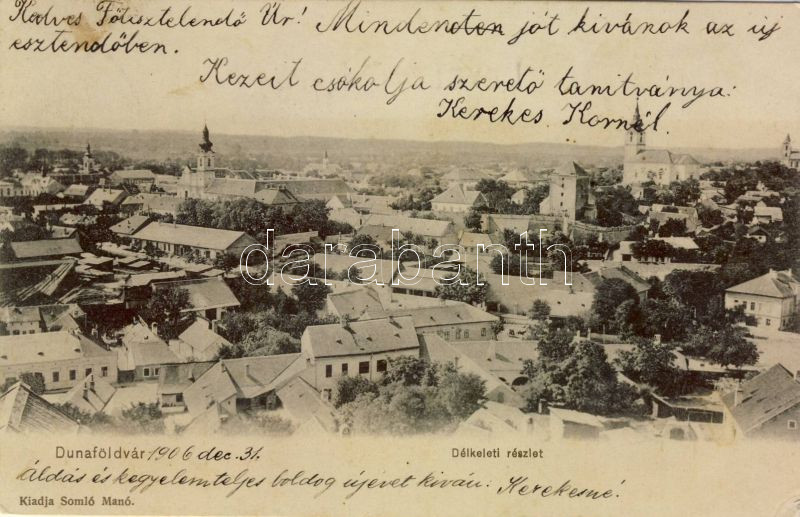 Kedves Főtisztelendő Úr! Mindeneten jót kivánok az uj
esztendőben.
Kezeit csókolja szerető tanitványa:
Kerekes Kornél.
darabanth
Dunaföldvár 1906 dec. 31.
Délkeleti részlet
Áldás és kegyelemteljes boldog újévet kiván: Kerekesné.
Kiadja Somló Manó.